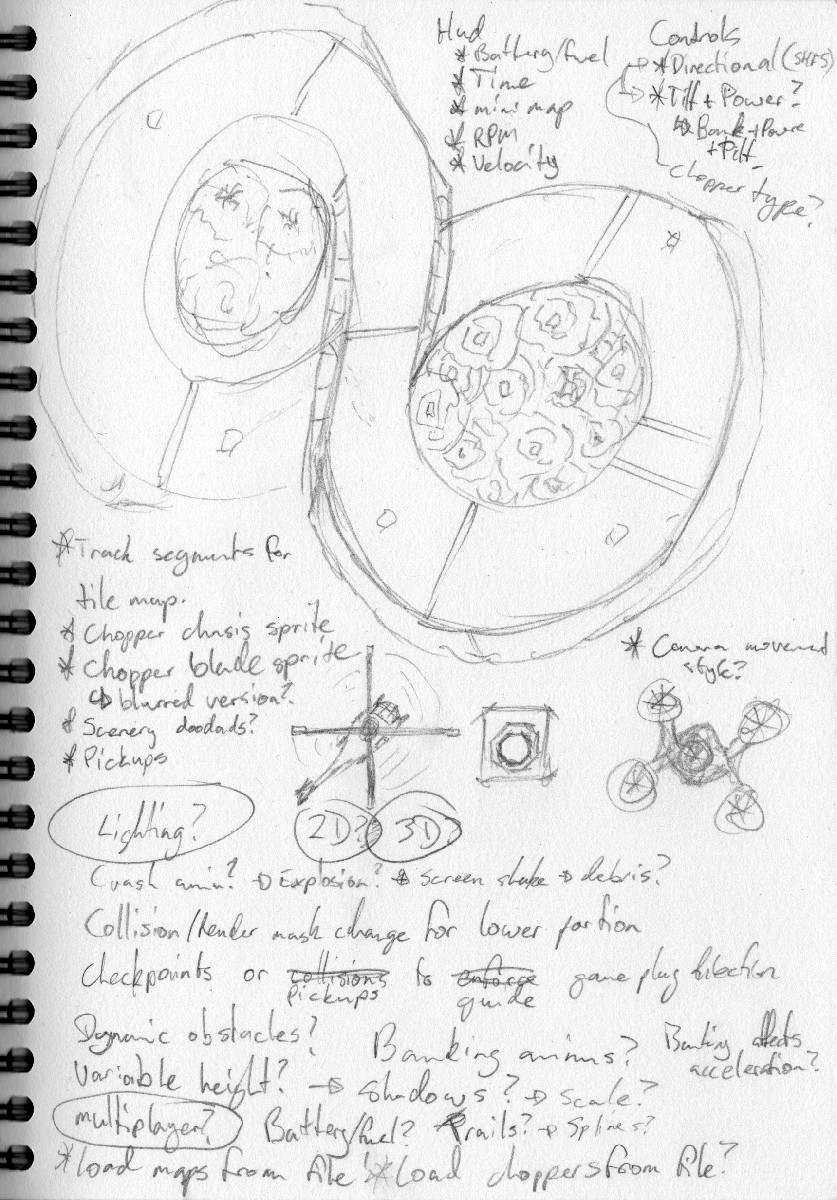 Hud
* Battery/fuel
* Time
* mini map
* RPM
* Velocity
Controls
* Directional (SHFS)
* Tilt + Power?
↳ Bank + Power
+ Pitch
chopper type?
* Track segments for
tile map.
* Chopper chasis sprite
* Chopper blade sprite
↳ blurred version?
* Scenery doodads?
* Pickups
* Camera movement
style?
Lighting?
2D? 3D?
Crash anim? → Explosion? → screen shake → debris?
Collision/Render mask change for lower portion
Checkpoints or collisions to enforce gameplay direction
pickups guide
Dynamic obstacles?
Banking anims?
Banking affects
acceleration?
Variable height? → shadows? → scale?
multiplayer? Battery/fuel? Trails? → Splines?
* load maps from file! * load choppers from file?